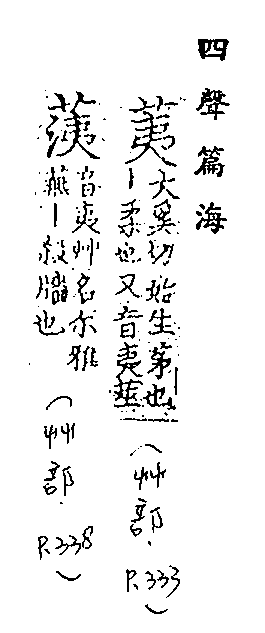 四聲篇海
荑
大奚切始生茅也
丨柔也又音夷莁
(艸部. P.333)
音夷艸名尔雅
丨殺牆也
(艸部. P.338)